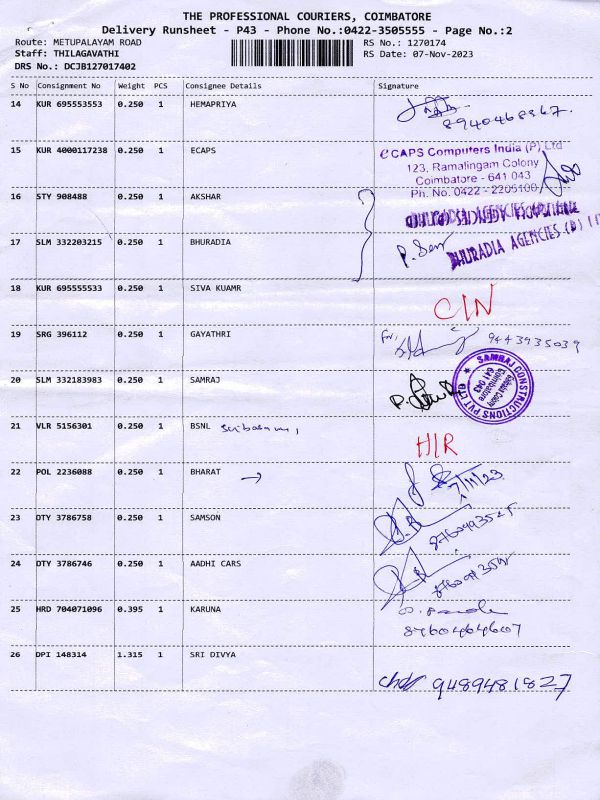 THE PROFESSIONAL COURIERS, COIMBATORE
Delivery Runsheet - P43 - Phone No.:0422-3505555 - Page No.:2
Route: METUPALAYAM ROAD RS No.: 1270174
Staff: THILAGAVATHI RS Date: 07-Nov-2023
DRS No.: DCJB127017402
S No Consignment No Weight PCS Consignee Details Signature
14 KUR 695553553 0.250 1 HEMAPRIYA
8940468867.
15 KUR 4000117238 0.250 1 ECAPS
eCAPS Computers India (P) Ltd
123, Ramalingam Colony
Coimbatore - 641 043
Ph. No. 0422 - 2205100
16 STY 908488 0.250 1 AKSHAR
17 SLM 332203215 0.250 1 BHURADIA
BHURADIA AGENCIES (P)
18 KUR 695555533 0.250 1 SIVA KUAMR C/N
19 SRG 396112 0.250 1 GAYATHRI 9443935039
20 SLM 332183983 0.250 1 SAMRAJ
SAMRAJ CONSTRUCTIONS PVT LTD
Coimbatore
641 043
21 VLR 5156301 0.250 1 BSNL H/R
22 POL 2236088 0.250 1 BHARAT → 7/11/23
23 DTY 3786758 0.250 1 SAMSON
24 DTY 3786746 0.250 1 AADHI CARS
25 HRD 704071096 0.395 1 KARUNA
8760464607
26 DPI 148314 1.315 1 SRI DIVYA
9489481827